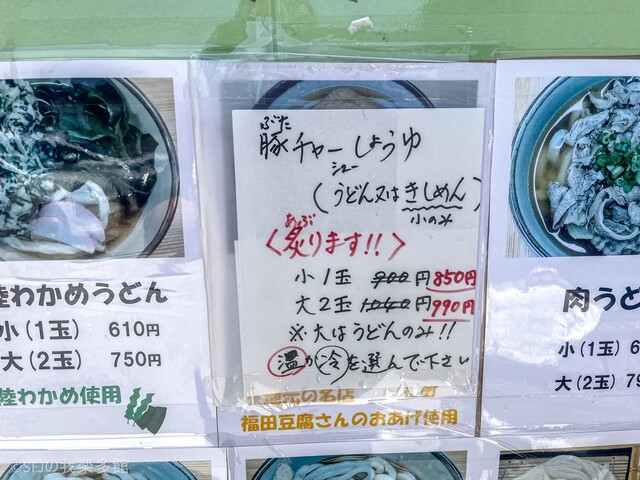 ぶた
豚チャーシューしょうゆ
(うどん又はきしめん)
小のみ
あぶ
<炙ります!!>
小1玉 900円 850円
大2玉 1040円 990円
※大はうどんのみ!!
温か冷を選んで下さい
の名店
福田豆腐さんのおあげ使用
陸わかめうどん
小(1玉) 610円
大(2玉) 750円
陸わかめ使用
肉うど
小(1玉) 6
大(2玉) 79